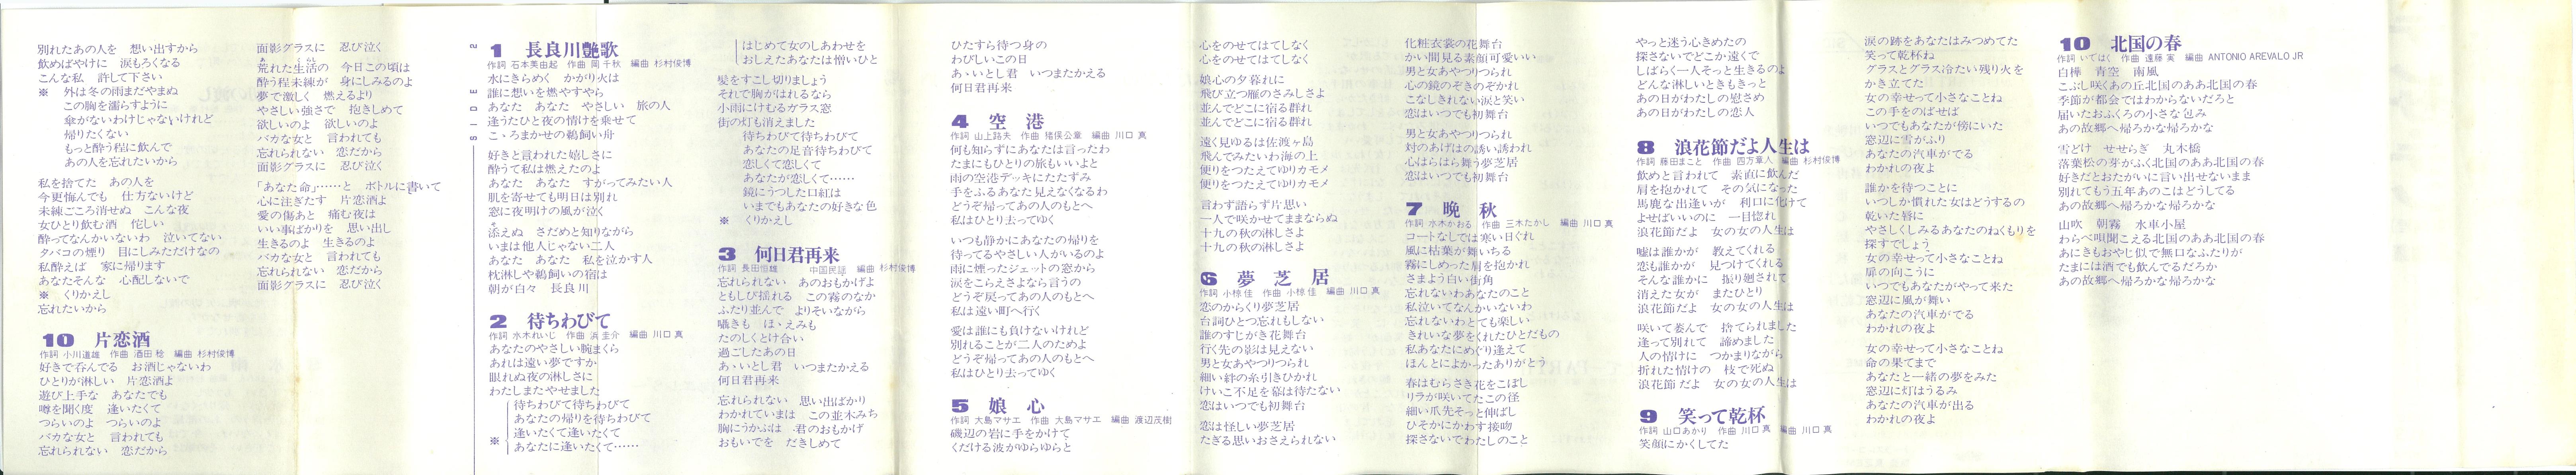 別れたあの人を　想い出すから
飲めばやけに　涙もろくなる
こんな私　許して下さい
※　外は冬の雨まだやまぬ
この胸を濡らすように
傘がないわけじゃないけれど
帰りたくない
もっと酔う程に飲んで
あの人を忘れたいから
私を捨てた　あの人を
今更悔んでも　仕方ないけど
未練ごころ消せぬ　こんな夜
女ひとり飲む酒　侘しい
酔ってなんかいないわ　泣いてない
タバコの煙り　目にしみただけなの
私酔えば　家に帰ります
あなたそんな　心配しないで
※　くりかえし
忘れたいから
10　片恋酒
作詞 小川道雄　作曲 酒田 稔　編曲 杉村俊博
好きで呑んでる　お酒じゃないわ
ひとりが淋しい　片恋酒よ
遊び上手な　あなたでも
噂を聞く度　逢いたくて
つらいのよ　つらいのよ
バカな女と　言われても
忘れられない　恋だから
面影グラスに　忍び泣く
荒れた生活の　今日この頃は
酔う程未練が　身にしみるのよ
夢で激しく　燃えるより
やさしい強さで　抱きしめて
欲しいのよ　欲しいのよ
バカな女と　言われても
忘れられない　恋だから
面影グラスに　忍び泣く
「あなた命」……と　ボトルに書いて
心に注ぎたす　片恋酒よ
愛の傷あと　痛む夜は
いい事ばかりを　思い出し
生きるのよ　生きるのよ
バカな女と　言われても
忘れられない　恋だから
面影グラスに　忍び泣く
SIDE 2
1　長良川艶歌
作詞 石本美由起　作曲 岡 千秋　編曲 杉村俊博
水にきらめく　かがり火は
誰に想いを燃やすやら
あなた　あなた　やさしい　旅の人
逢うたひと夜の情けを乗せて
こゝろまかせの鵜飼い舟
好きと言われた嬉しさに
酔うて私は燃えたのよ
あなた　あなた　すがってみたい人
肌を寄せても明日は別れ
窓に夜明けの風が泣く
添えぬ　さだめと知りながら
いまは他人じゃない二人
あなた　あなた　私を泣かす人
枕淋しや鵜飼いの宿は
朝が白々　長良川
2　待ちわびて
作詞 水木れいじ　作曲 浜 圭介　編曲 川口 真
あなたのやさしい腕まくら
あれは遠い夢ですか
眠れぬ夜の淋しさに
わたしまたやせました
待ちわびて待ちわびて
あなたの帰りを待ちわびて
※　逢いたくて逢いたくて
あなたに逢いたくて……
はじめて女のしあわせを
おしえたあなたは憎いひと
髪をすこし切りましょう
それで胸がはれるなら
小雨にけむるガラス窓
街の灯も消えました
待ちわびて待ちわびて
あなたの足音待ちわびて
恋しくて恋しくて
あなたが恋しくて……
鏡にうつした口紅は
いまでもあなたの好きな色
※　くりかえし
3　何日君再来
作詞 長田恒雄　中国民謡　編曲 杉村俊博
忘れられない　あのおもかげよ
ともしび揺れる　この霧のなか
ふたり並んで　よりそいながら
囁きも　ほゝえみも
たのしくとけ合い
過ごしたあの日
あゝいとし君　いつまたかえる
何日君再来
忘れられない　思い出ばかり
わかれていまは　この並木みち
胸にうかぶは　君のおもかげ
おもいでを　だきしめて
ひたすら待つ身の
わびしいこの日
あゝいとし君　いつまたかえる
何日君再来
4　空　港
作詞 山上路夫　作曲 猪俣公章　編曲 川口 真
何も知らずにあなたは言ったわ
たまにもひとりの旅もいいよと
雨の空港デッキにたたずみ
手をふるあなた見えなくなるわ
どうぞ帰ってあの人のもとへ
私はひとり去ってゆく
いつも静かにあなたの帰りを
待ってるやさしい人がいるのよ
雨に煙ったジェットの窓から
涙をこらえさよなら言うの
どうぞ戻ってあの人のもとへ
私は遠い町へ行く
愛は誰にも負けないけれど
別れることが二人のためよ
どうぞ帰ってあの人のもとへ
私はひとり去ってゆく
5　娘　心
作詞 大島マサエ　作曲 大島マサエ　編曲 渡辺茂樹
磯辺の岩に手をかけて
くだける波がゆらゆらと
心をのせてはてしなく
心をのせてはてしなく
娘心の夕暮れに
飛び立つ雁のさみしさよ
並んでどこに宿る群れ
並んでどこに宿る群れ
遠く見ゆるは佐渡ヶ島
飛んでみたいわ海の上
便りをつたえてゆりカモメ
便りをつたえてゆりカモメ
言わず語らず片思い
一人で咲かせてままならぬ
十九の秋の淋しさよ
十九の秋の淋しさよ
6　夢　芝　居
作詞 小椋 佳　作曲 小椋 佳　編曲 川口 真
恋のからくり夢芝居
台詞ひとつ忘れもしない
誰のすじがき花舞台
行く先の影は見えない
男と女あやつりつられ
細い絆の糸引きひかれ
けいこ不足を幕は待たない
恋はいつでも初舞台
恋は怪しい夢芝居
たぎる思いおさえられない
化粧衣裳の花舞台
かい間見る素顔可愛いい
男と女あやつりつられ
心の鏡のぞきのぞかれ
こなしきれない涙と笑い
恋はいつでも初舞台
男と女あやつりつられ
対のあげはの誘い誘われ
心はらはら舞う夢芝居
恋はいつでも初舞台
7　晩　秋
作詞 水木かおる　作曲 三木たかし　編曲 川口 真
コートなしでは寒い日ぐれ
風に枯葉が舞いちる
霧にしめった肩を抱かれ
さまよう白い街角
忘れないわあなたのこと
私泣いてなんかいないわ
忘れないわとても楽しい
きれいな夢をくれたひとだもの
私あなたにめぐり逢えて
ほんとによかったありがとう
春はむらさき花をこぼし
リラが咲いてたこの径
細い爪先そっと伸ばし
ひそかにかわす接吻
探さないでわたしのこと
やっと迷う心きめたの
探さないでどこか遠くで
しばらく一人そっと生きるのよ
どんな淋しいときもきっと
あの日がわたしの慰さめ
あの日がわたしの恋人
8　浪花節だよ人生は
作詞 藤田まこと　作曲 四方章人　編曲 杉村俊博
飲めと言われて　素直に飲んだ
肩を抱かれて　その気になった
馬鹿な出逢いが　利口に化けて
よせばいいのに　一目惚れ
浪花節だよ　女の女の人生は
嘘は誰かが　教えてくれる
恋も誰かが　見つけてくれる
そんな誰かに　振り廻されて
消えた女が　またひとり
浪花節だよ　女の女の人生は
咲いて萎んで　捨てられました
逢って別れて　諦めました
人の情けに　つかまりながら
折れた情けの　枝で死ぬ
浪花節だよ　女の女の人生は
9　笑って乾杯
作詞 山口あかり　作曲 川口 真　編曲 川口 真
笑顔にかくしてた
涙の跡をあなたはみつめてた
笑って乾杯ね
グラスとグラス冷たい残り火を
かき立てた
女の幸せって小さなことね
この手をのばせば
いつでもあなたが傍にいた
窓辺に雪がふり
あなたの汽車がでる
わかれの夜よ
誰かを待つことに
いつしか慣れた女はどうするの
乾いた唇に
やさしくしみるあなたのねくもりを
探すでしょう
女の幸せって小さなことね
扉の向こうに
いつでもあなたがやって来た
窓辺に風が舞い
あなたの汽車がでる
わかれの夜よ
女の幸せって小さなことね
命の果てまで
あなたと一緒の夢をみた
窓辺に灯はうるみ
あなたの汽車が出る
わかれの夜よ
10　北国の春
作詞 いではく　作曲 遠藤 実　編曲 ANTONIO AREVALO JR
白樺　青空　南風
こぶし咲くあの丘北国のああ北国の春
季節が都会ではわからないだろと
届いたおふくろの小さな包み
あの故郷へ帰ろかな帰ろかな
雪どけ　せせらぎ　丸木橋
落葉松の芽がふく北国のああ北国の春
好きだとおたがいに言い出せないまま
別れてもう五年あのこはどうしてる
あの故郷へ帰ろかな帰ろかな
山吹　朝霧　水車小屋
わらべ唄聞こえる北国のああ北国の春
あにきもおやじ似で無口なふたりが
たまには酒でも飲んでるだろか
あの故郷へ帰ろかな帰ろかな